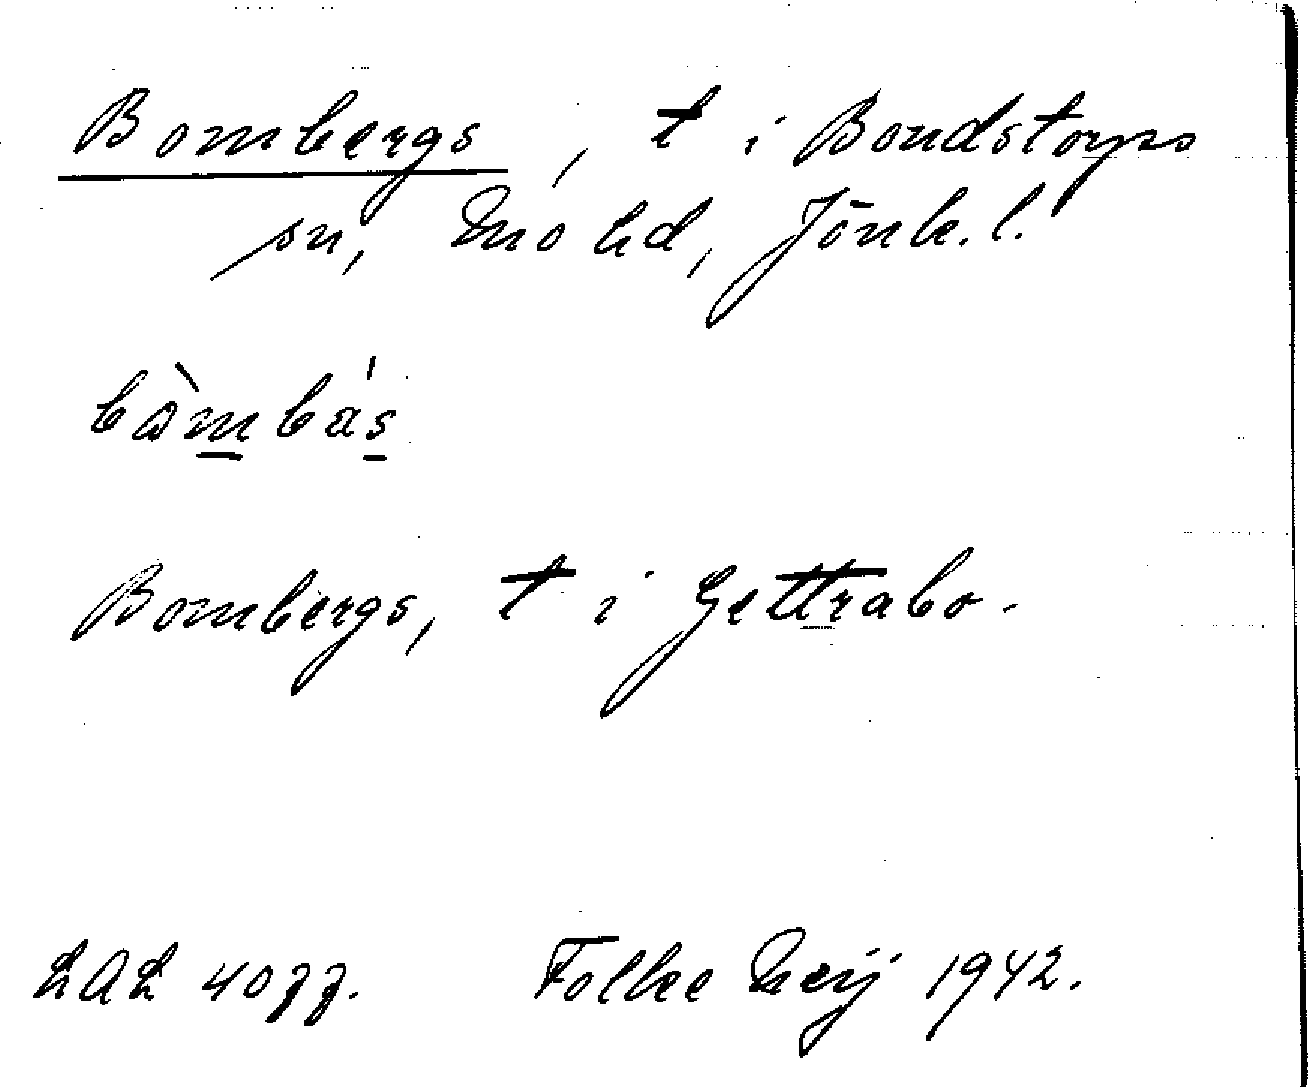 Bombergs, t i Bondstorps
sn, Mo hd, Jönk. l.
bòmbás
Bombergs, t i Gettrabo.
LAL 4077. Folke Meij 1942.